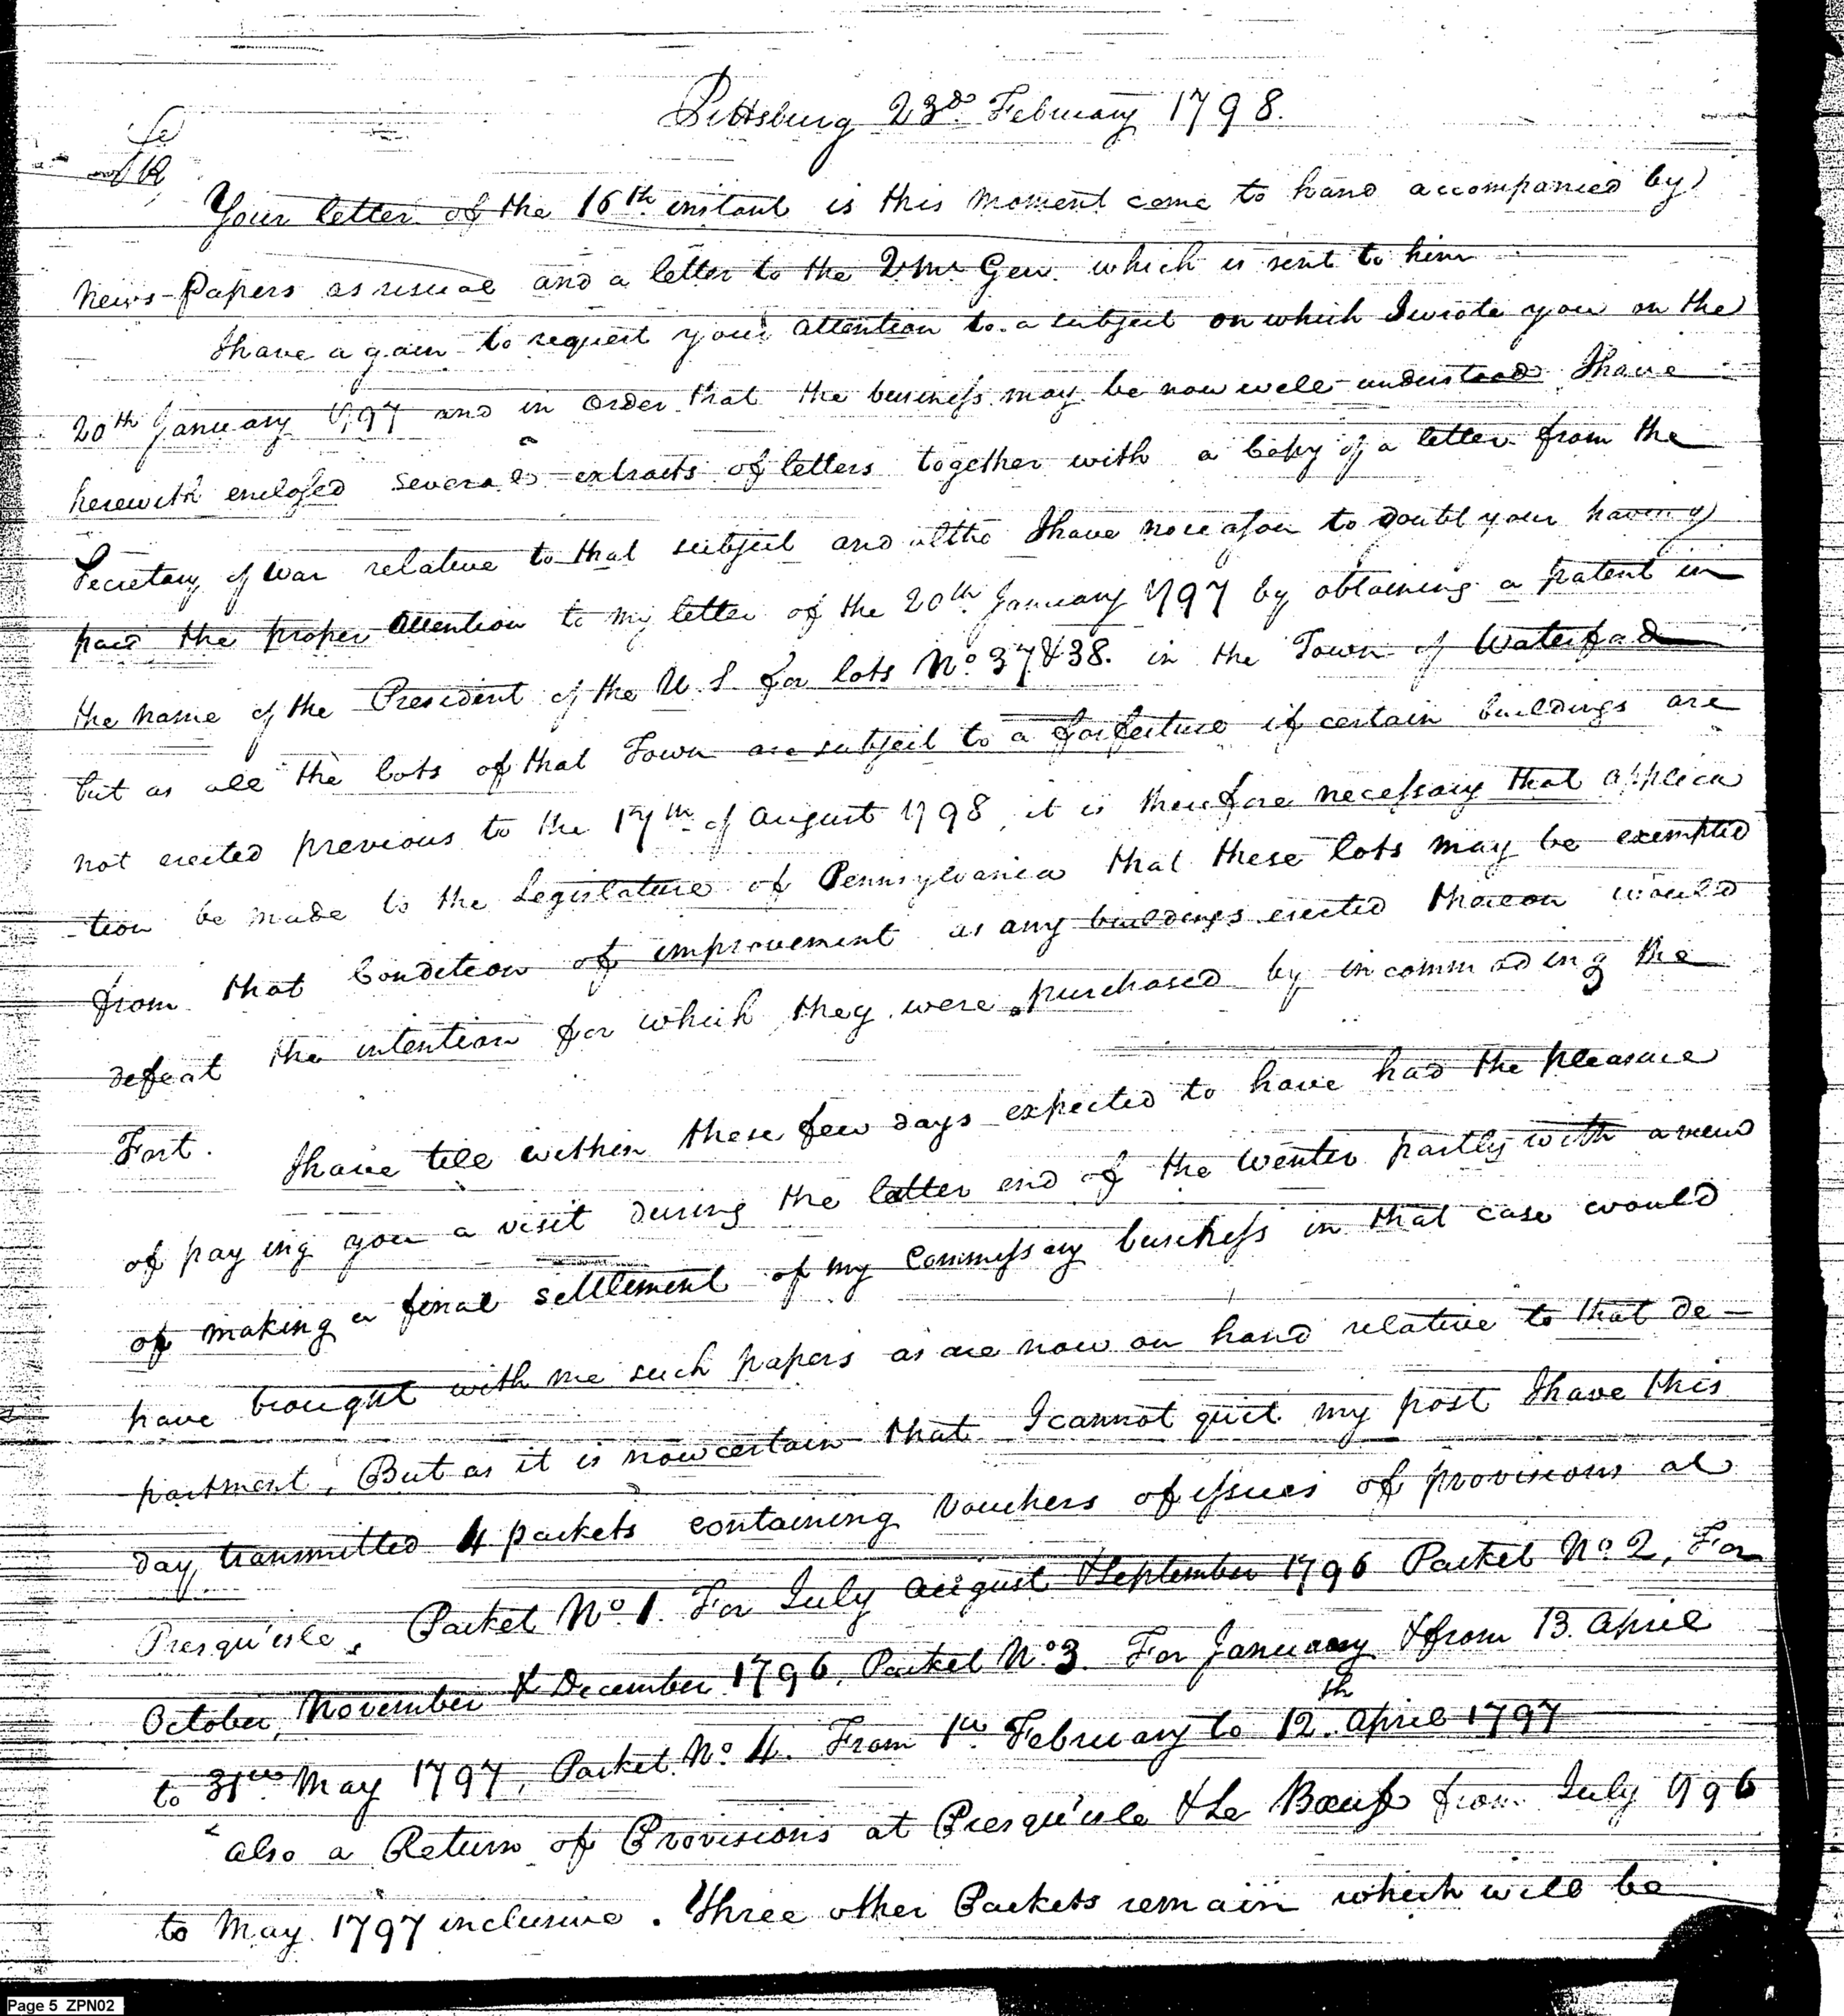 Pittsburg 23d. February 1798.
Sir
Your letter of the 16th instant is this moment come to hand accompanied by
News-Papers as usual and a letter to the Qr Mr Gen. which is sent to him
I have again to request your attention to a subject on which I wrote you on the
20th January 1797 and in order that the business may be now well understood I have
herewith enclosed several extracts of letters together with a Copy of a letter from the
Secretary of War relative to that subject and altho I have no reason to doubt your having
paid the proper attention to my letter of the 20th January 1797 by obtaining a patent in
the name of the President of the U. S. for lots No. 37 & 38. in the Town of Waterford
but as all the lots of that Town are subject to a forfeiture if certain buildings are
not erected previous to the 17th of August 1798, it is therefore necessary that applica
-tion be made to the Legislature of Pennsylvania that these lots may be exempted
from that Condition of improvement as any buildings erected thereon would
defeat the intention for which they were purchased by incommoding the
Fort.
I have till within these few days expected to have had the pleasure
of paying you a visit during the latter end of the Winter partly with a view
of making a final settlement of my Commissary business in that case would
have brought with me such papers as are now on hand relative to that de-
partment, But as it is now certain that I cannot quit my post I have this
day transmitted 4 packets containing Vouchers of issues of provisions at
Presqu'isle, Packet No. 1. For July August & September 1796 Packet No 2, For
October, November & December 1796, Packet No. 3. For January & from 13. April
to 31st May 1797, Packet No 4. From 1st February to 12th. April 1797
also a Return of Provisions at Presqu'isle & Le Bœuf from July 1796
to May 1797 inclusive. Three other Packets remain which will be
Page 5 ZPN02